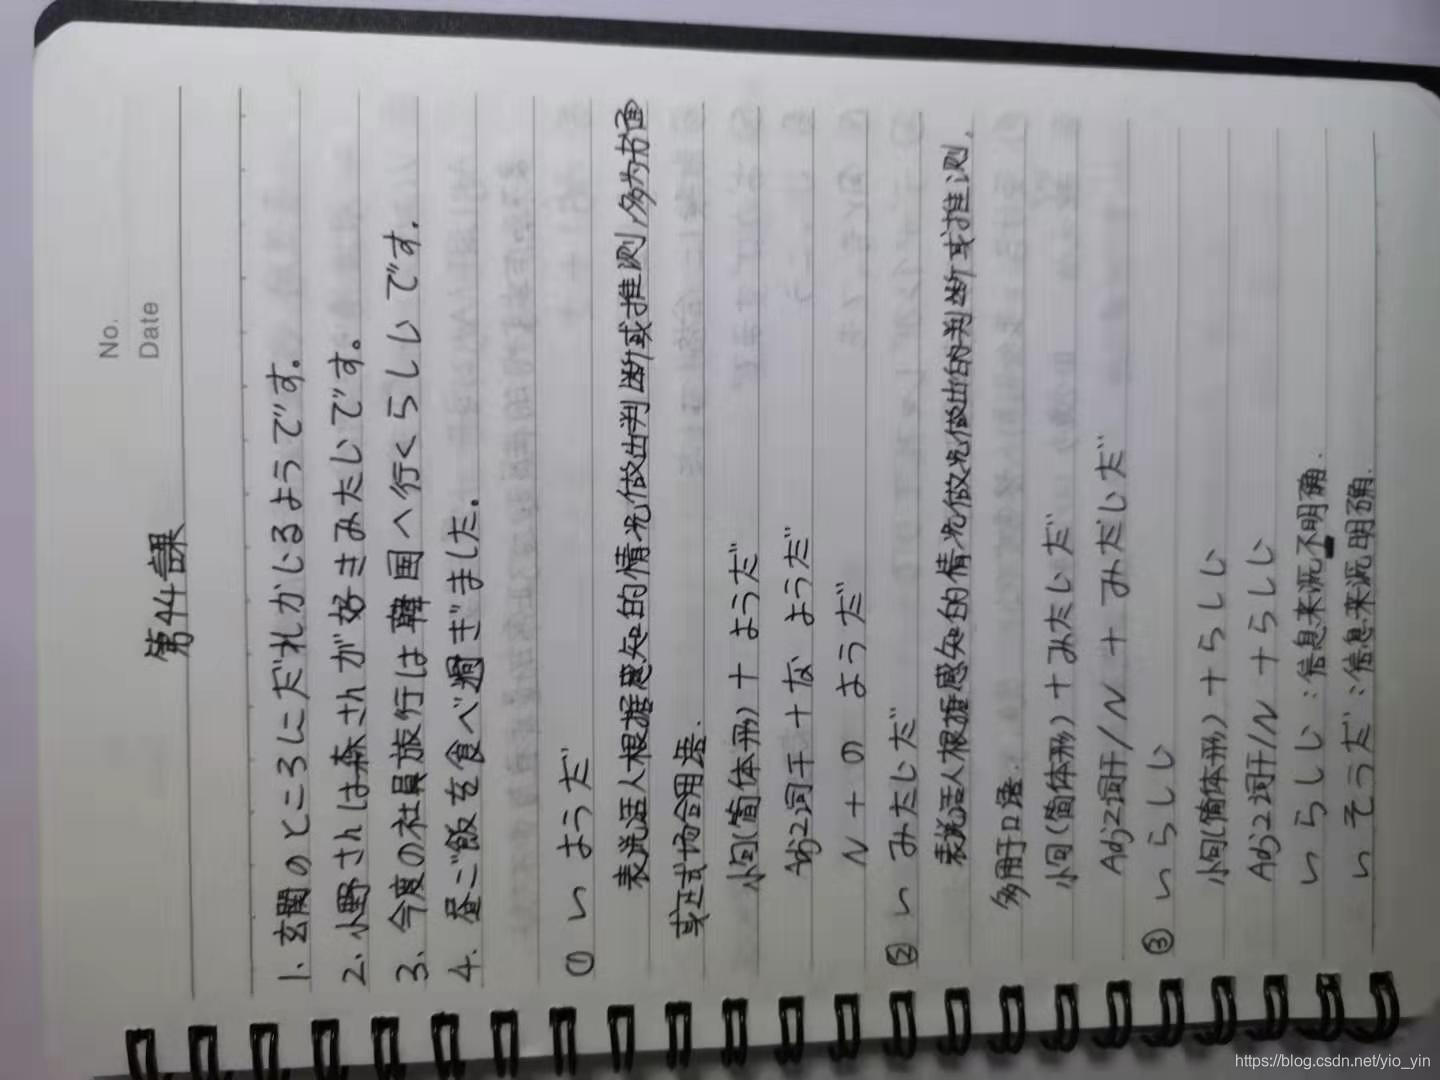 No.
Date
第44課
1. 玄関のところにだれかいるようです。
2. 小野さんは森さんが好きみたいです。
3. 今度の社員旅行は韓国へ行くらしいです.
4. 昼ご飯を食べ過ぎました。
① い ようだ
表说话人根据感知的情况做出判断或推测,多为书面
或正式场合用语.
小句(简体形) + ようだ
Adj2词干 + な ようだ
N + の ようだ
② い みたいだ
表说话人根据感知的情况做出的判断或推测,
多用于口语.
小句(简体形) + みたいだ
Adj2词干/N + みたいだ
③ い らしい
小句(简体形) + らしい
Adj2词干/N + らしい
い らしい : 信息来源不明确.
い そうだ : 信息来源明确.
https://blog.csdn.net/yio_yin